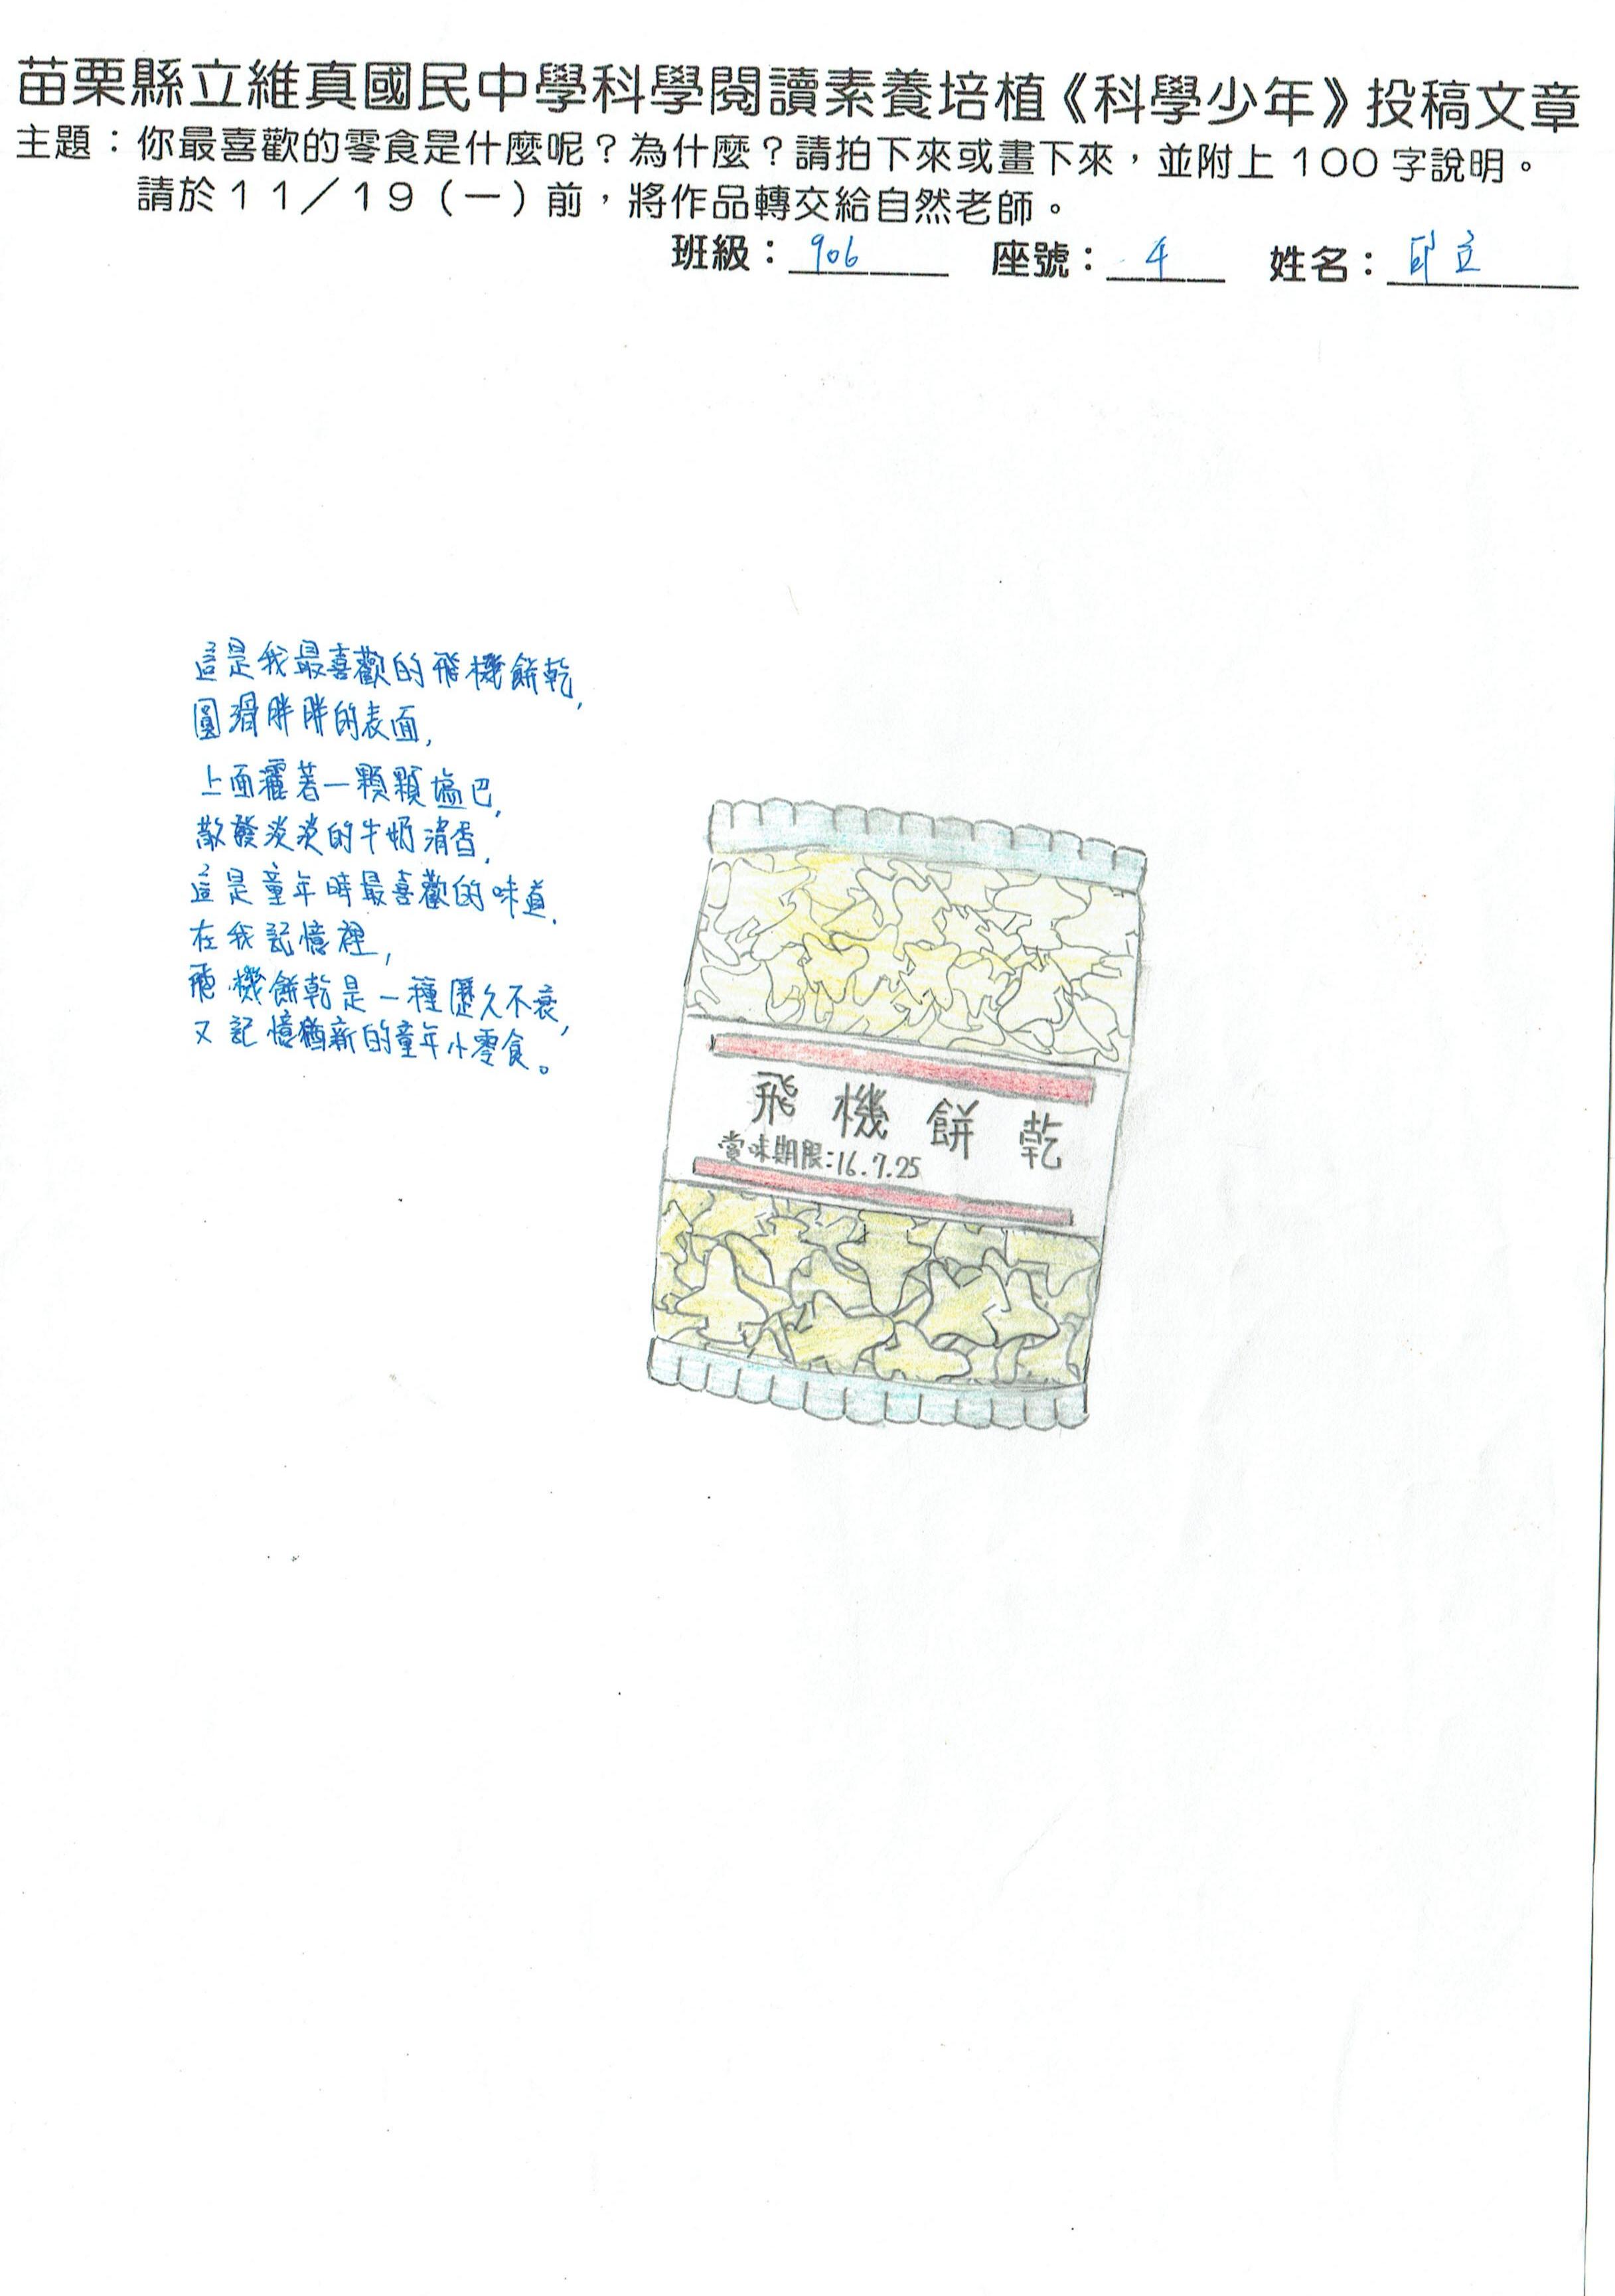 苗栗縣立維真國民中學科學閱讀素養培植《科學少年》投稿文章
主題：你最喜歡的零食是什麼呢？為什麼？請拍下來或畫下來，並附上100字說明。
請於11／19（一）前，將作品轉交給自然老師。
班級：906 座號：4 姓名：邱立
這是我最喜歡的飛機餅乾,
圓滑胖胖的表面,
上面灑著一顆顆塩巴,
散發淡淡的牛奶清香,
這是童年時最喜歡的味道,
在我記憶裡,
飛機餅乾是一種歷久不衰,
又記憶猶新的童年小零食。
飛機餅乾
賞味期限:16.7.25